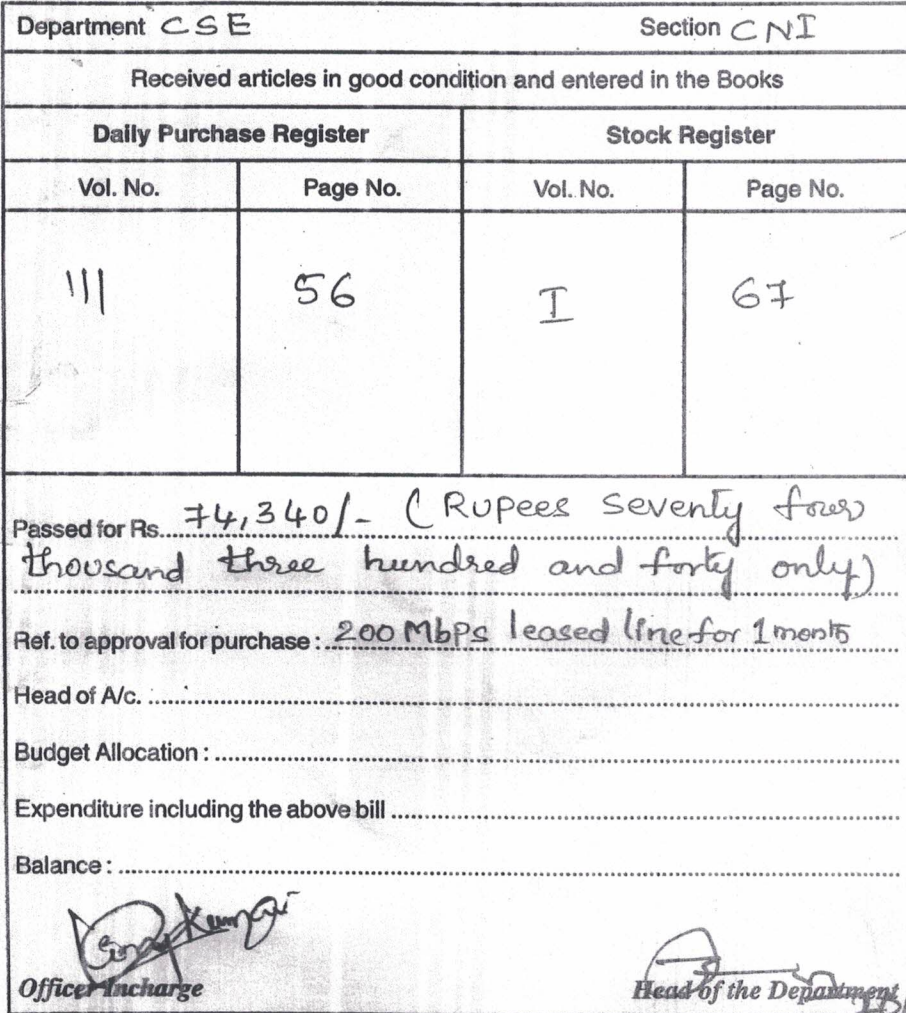 Department CSE Section CNI
Received articles in good condition and entered in the Books
Daily Purchase Register Stock Register
Vol. No. Page No. Vol. No. Page No.
III 56 I 67
Passed for Rs. 74,340/- (Rupees seventy four
thousand three hundred and forty only)
Ref. to approval for purchase : 200 Mbps leased line for 1 month
Head of A/c. :
Budget Allocation :
Expenditure including the above bill
Balance :
Officer Incharge Head of the Department